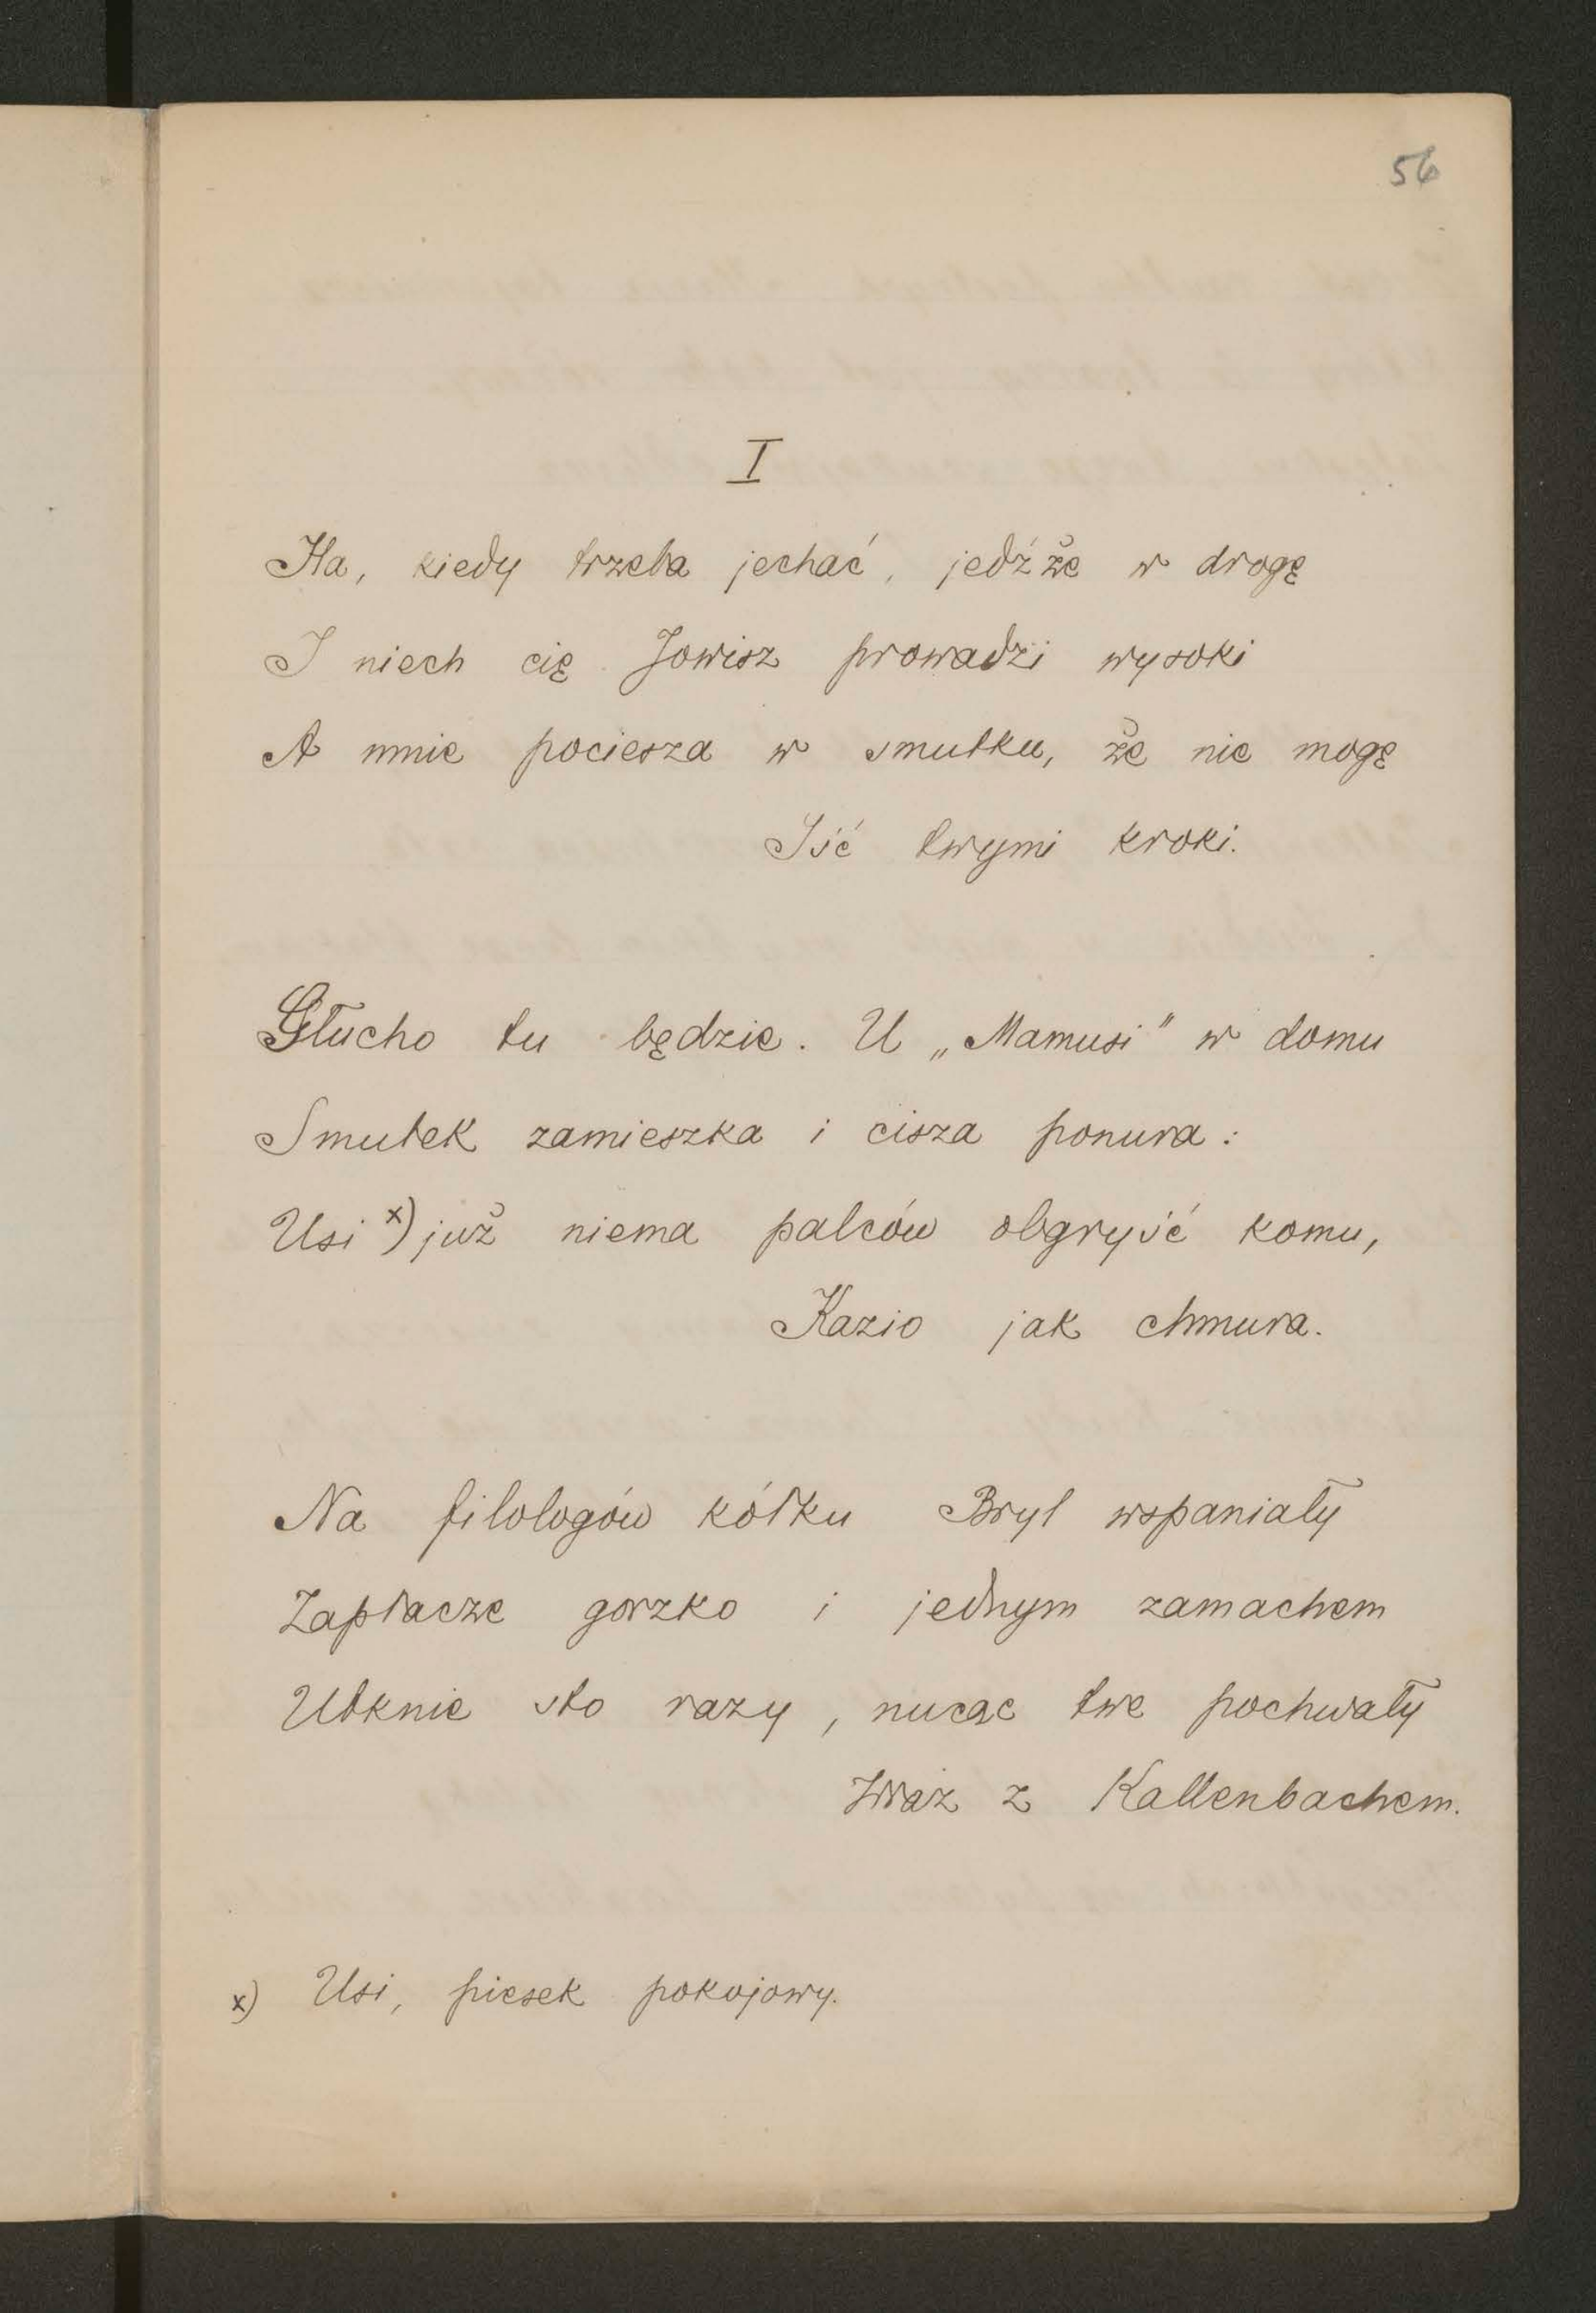 56
I
Ha, kiedy trzeba jechać, jedźże w drogę
I niech cię Jowisz prowadzi wysoki
A mnie pociesza w smutku, że nie mogę
Iść twymi kroki.
Głucho tu będzie. U „Mamusi" w domu
Smutek zamieszka i cisza ponura:
Usi x) już niema palców obgryść komu,
Kazio jak chmura.
Na filologów kółku Bryl wspaniały
Zapłacze gorzko i jednym zamachem
Utknie sto razy, nucąc twe pochwały
Wraz z Kallenbachem.
x) Usi, piesek pokojowy.